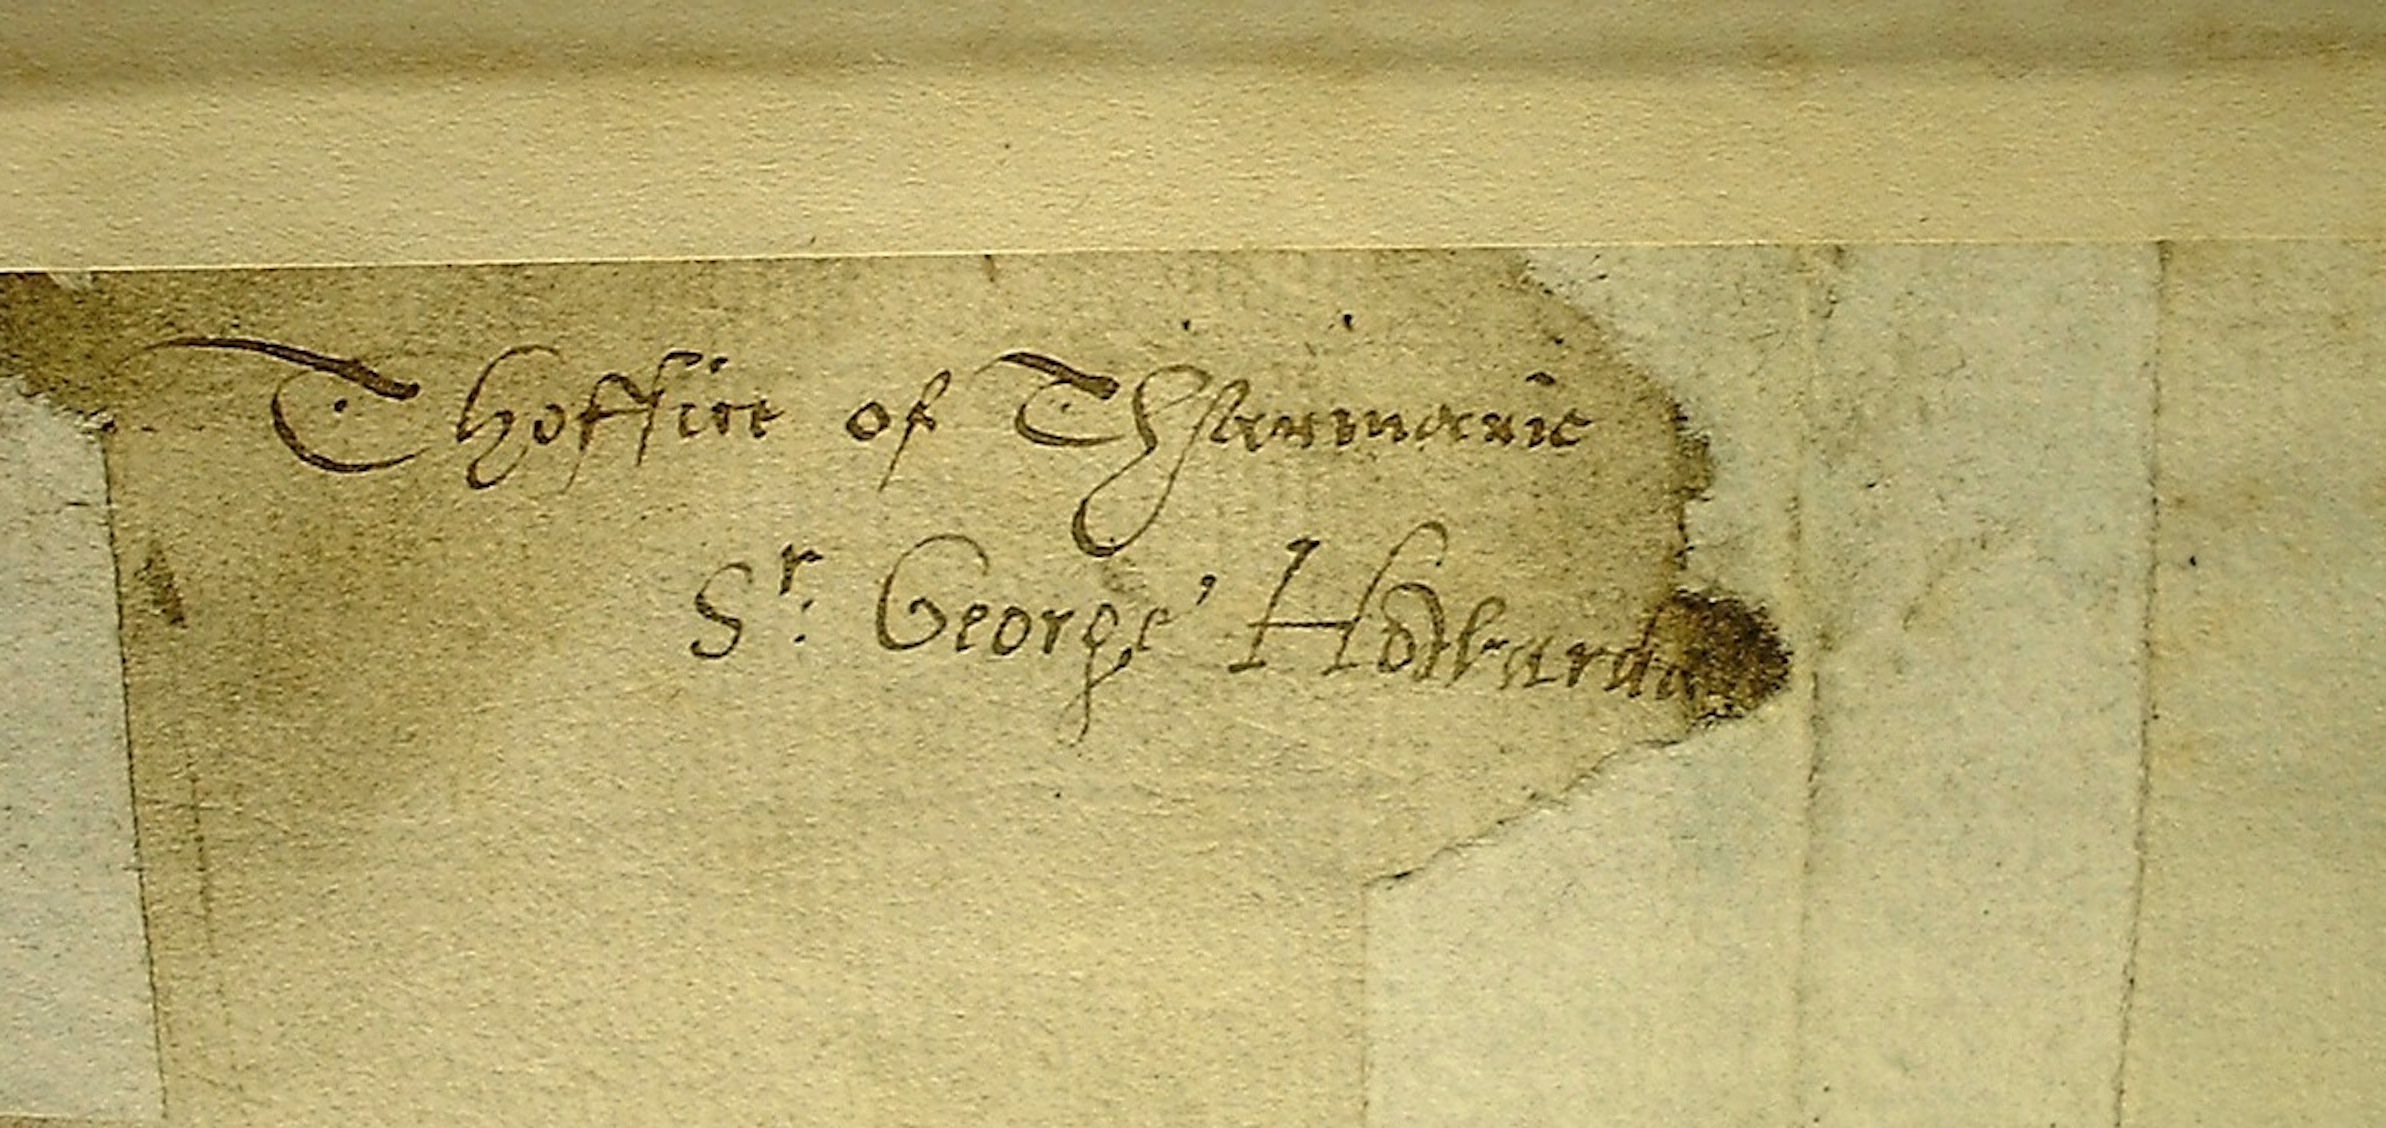 Thoffice of Tharmarie
Sr: George Howard